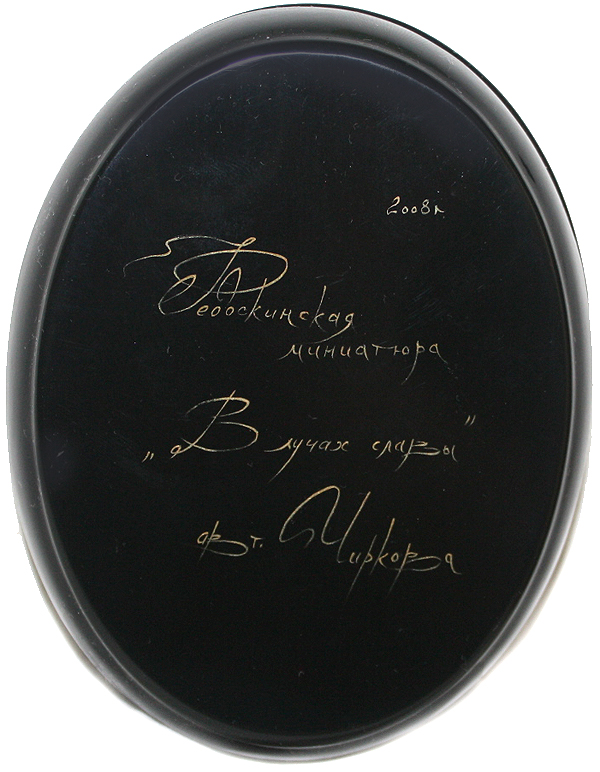 2008г.
Федоскинская
миниатюра
„В лучах славы"
авт. Чиркова